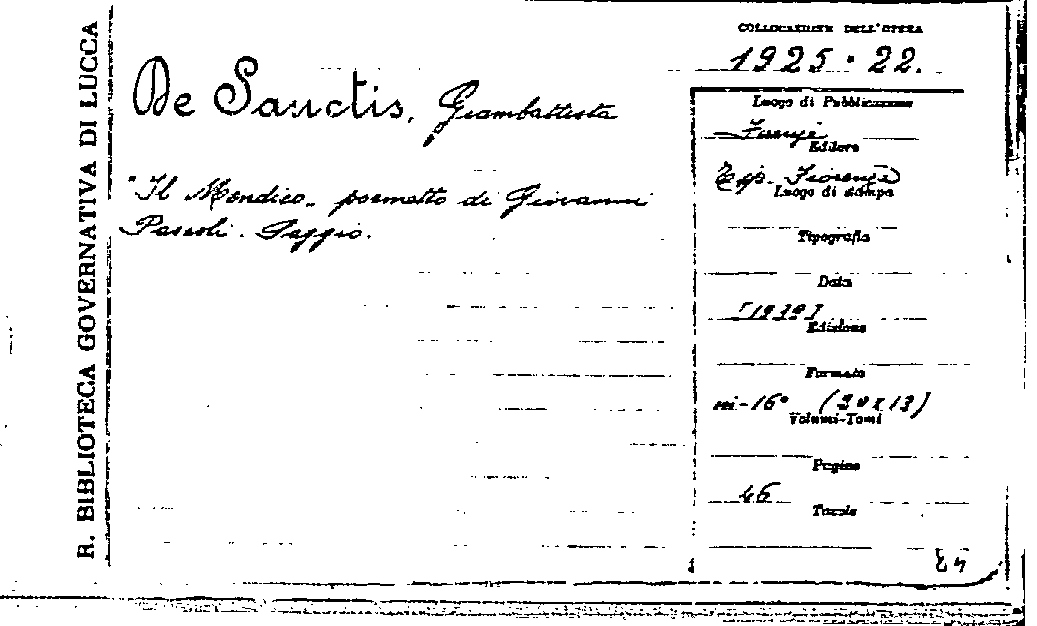 R. BIBLIOTECA GOVERNATIVA DI LUCCA
De Sanctis, Giambattista
"Il Mendico" poemetto di Giovanni
Pascoli. Saggio.
COLLOCAZIONE DELL'OPERA
1925 · 22.
Luogo di Pubblicazione
Editore
Tip.
Luogo di stampa
Tipografia
Data
Edizione
Formato
in-16° (20x13)
Volumi-Tomi
Pagine
46
Tavole